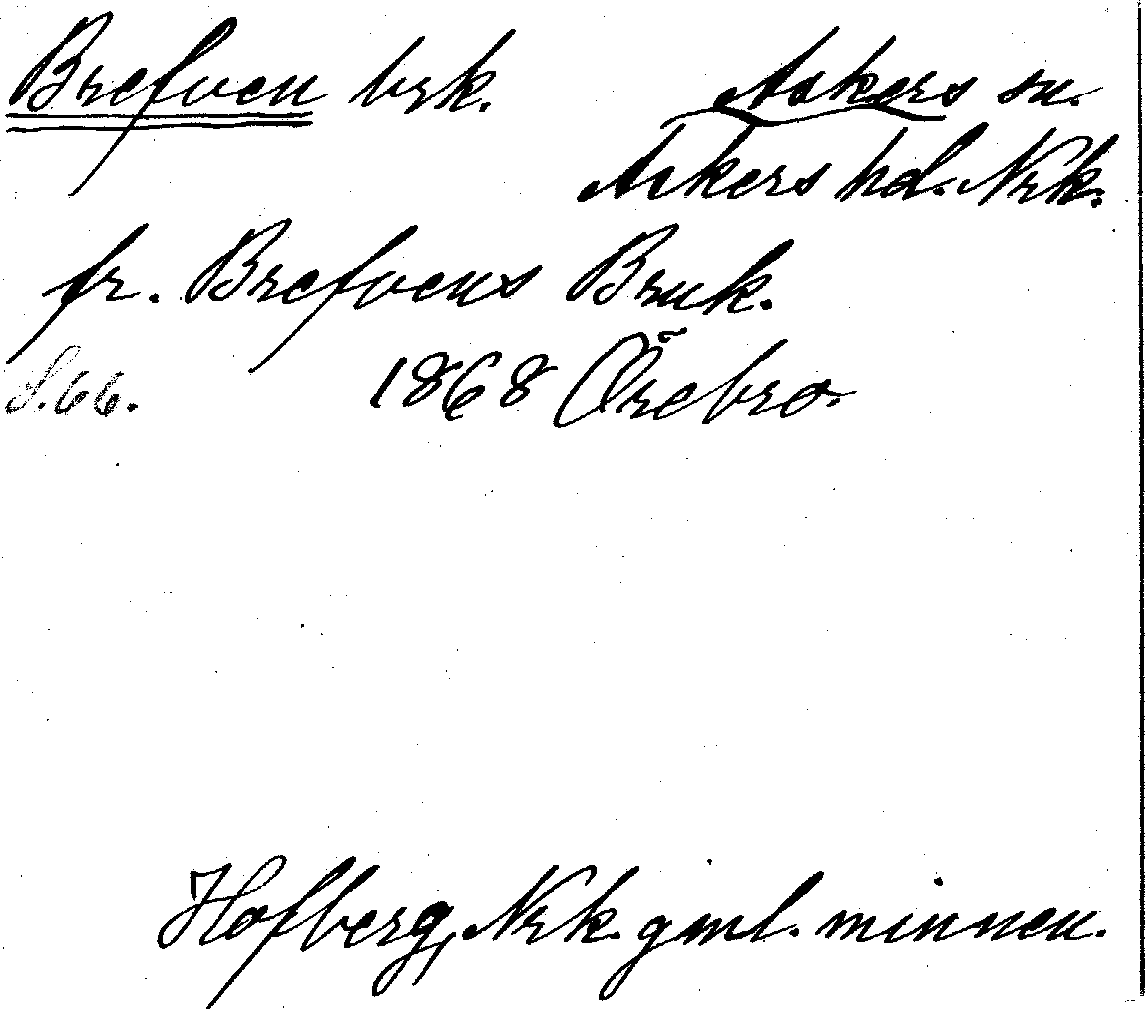 Brefven brk. Askers sn.
Askers hd. Nrk.
fr. Brefvens Bruk.
S.66. 1868 Örebro.
Hofberg, Nrk. gml. minnen.